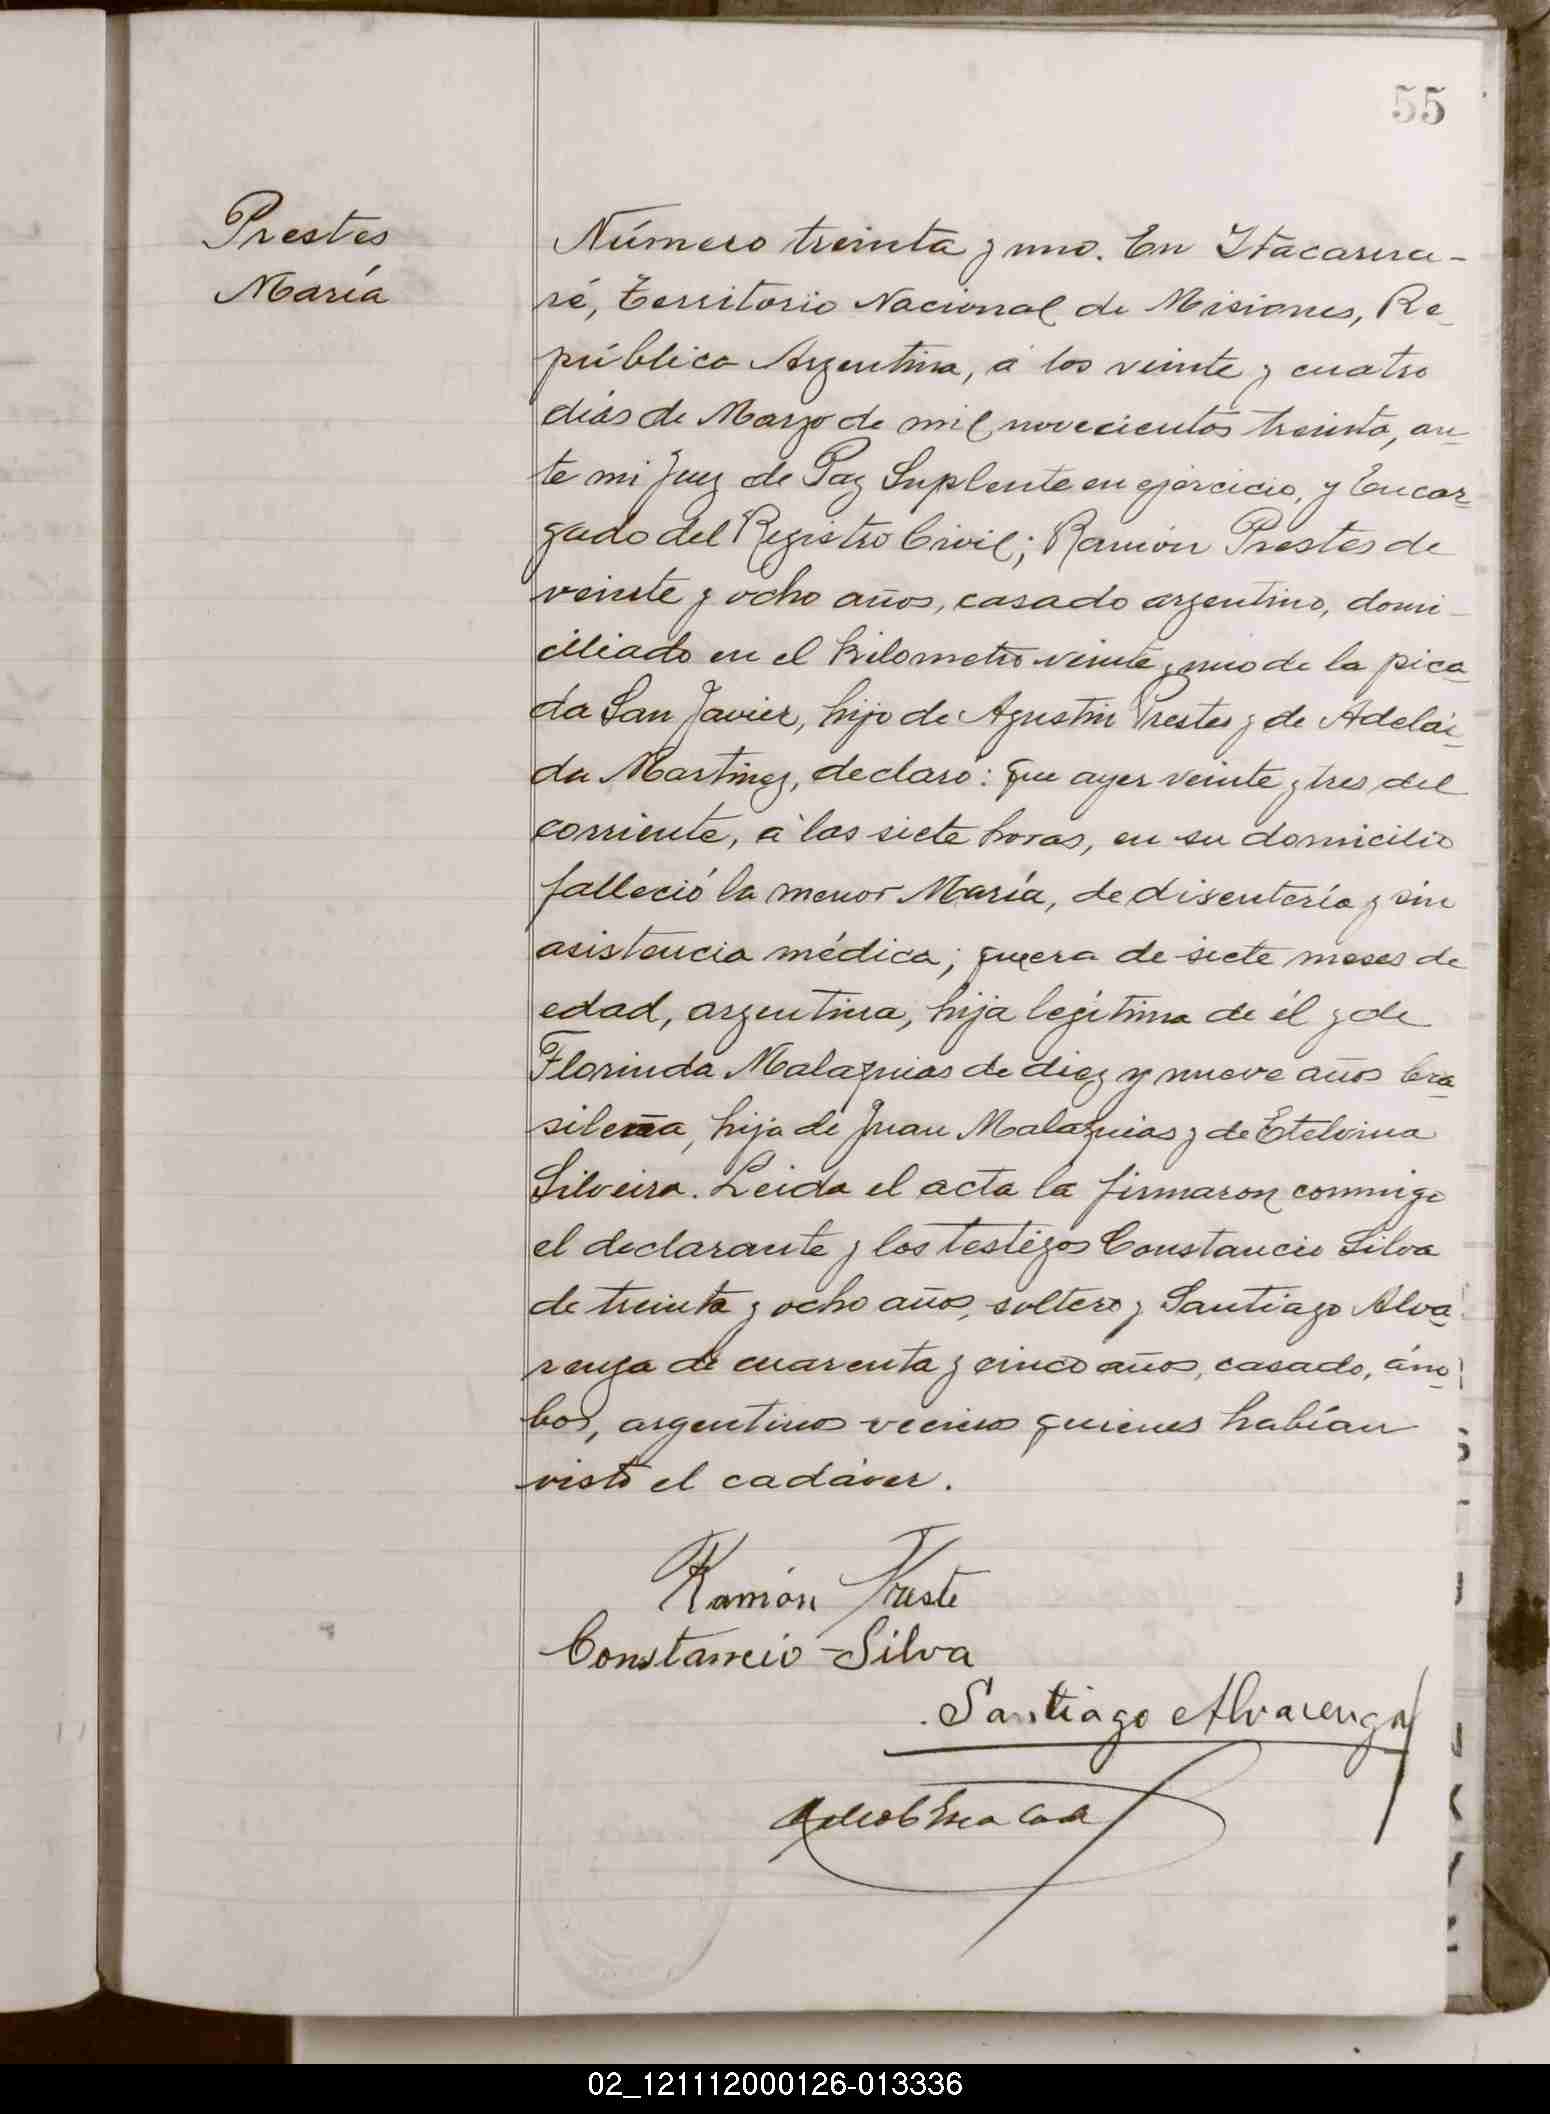 55
Prestes
María
Número treinta y uno. En Itacarua-
ré, Territorio Nacional de Misiones, Re-
pública Argentina, á los veinte y cuatro
días de Marzo de mil novecientos treinta, an-
te mi Juez de Paz Suplente en ejercicio, y Encar-
gado del Registro Civil; Ramón Prestes de
veinte y ocho años, casado argentino, domi-
ciliado en el kilometro veinte y uno de la pica-
da San Javier, hijo de Agustin Prestes y de Adelai-
da Martinez, declaró: que ayer veinte y tres del
corriente, á las siete horas, en su domicilio
falleció la menor María, de disentería y sin
asistencia médica; que era de siete meses de
edad, argentina, hija legítima de él y de
Florinda Malaquias de diez y nueve años bra-
sileña, hija de Juan Malaquias y de Etelvina
Silveira. Leida el acta la firmaron conmigo
el declarante y los testigos Constancio Silva
de treinta y ocho años, soltero y Santiago Alva-
renga de cuarenta y cinco años, casado, ám-
bos, argentinos vecinos quienes habían
visto el cadáver.
Ramón Preste
Constancio Silva
Santiago Alvarenga
02_121112000126-013336